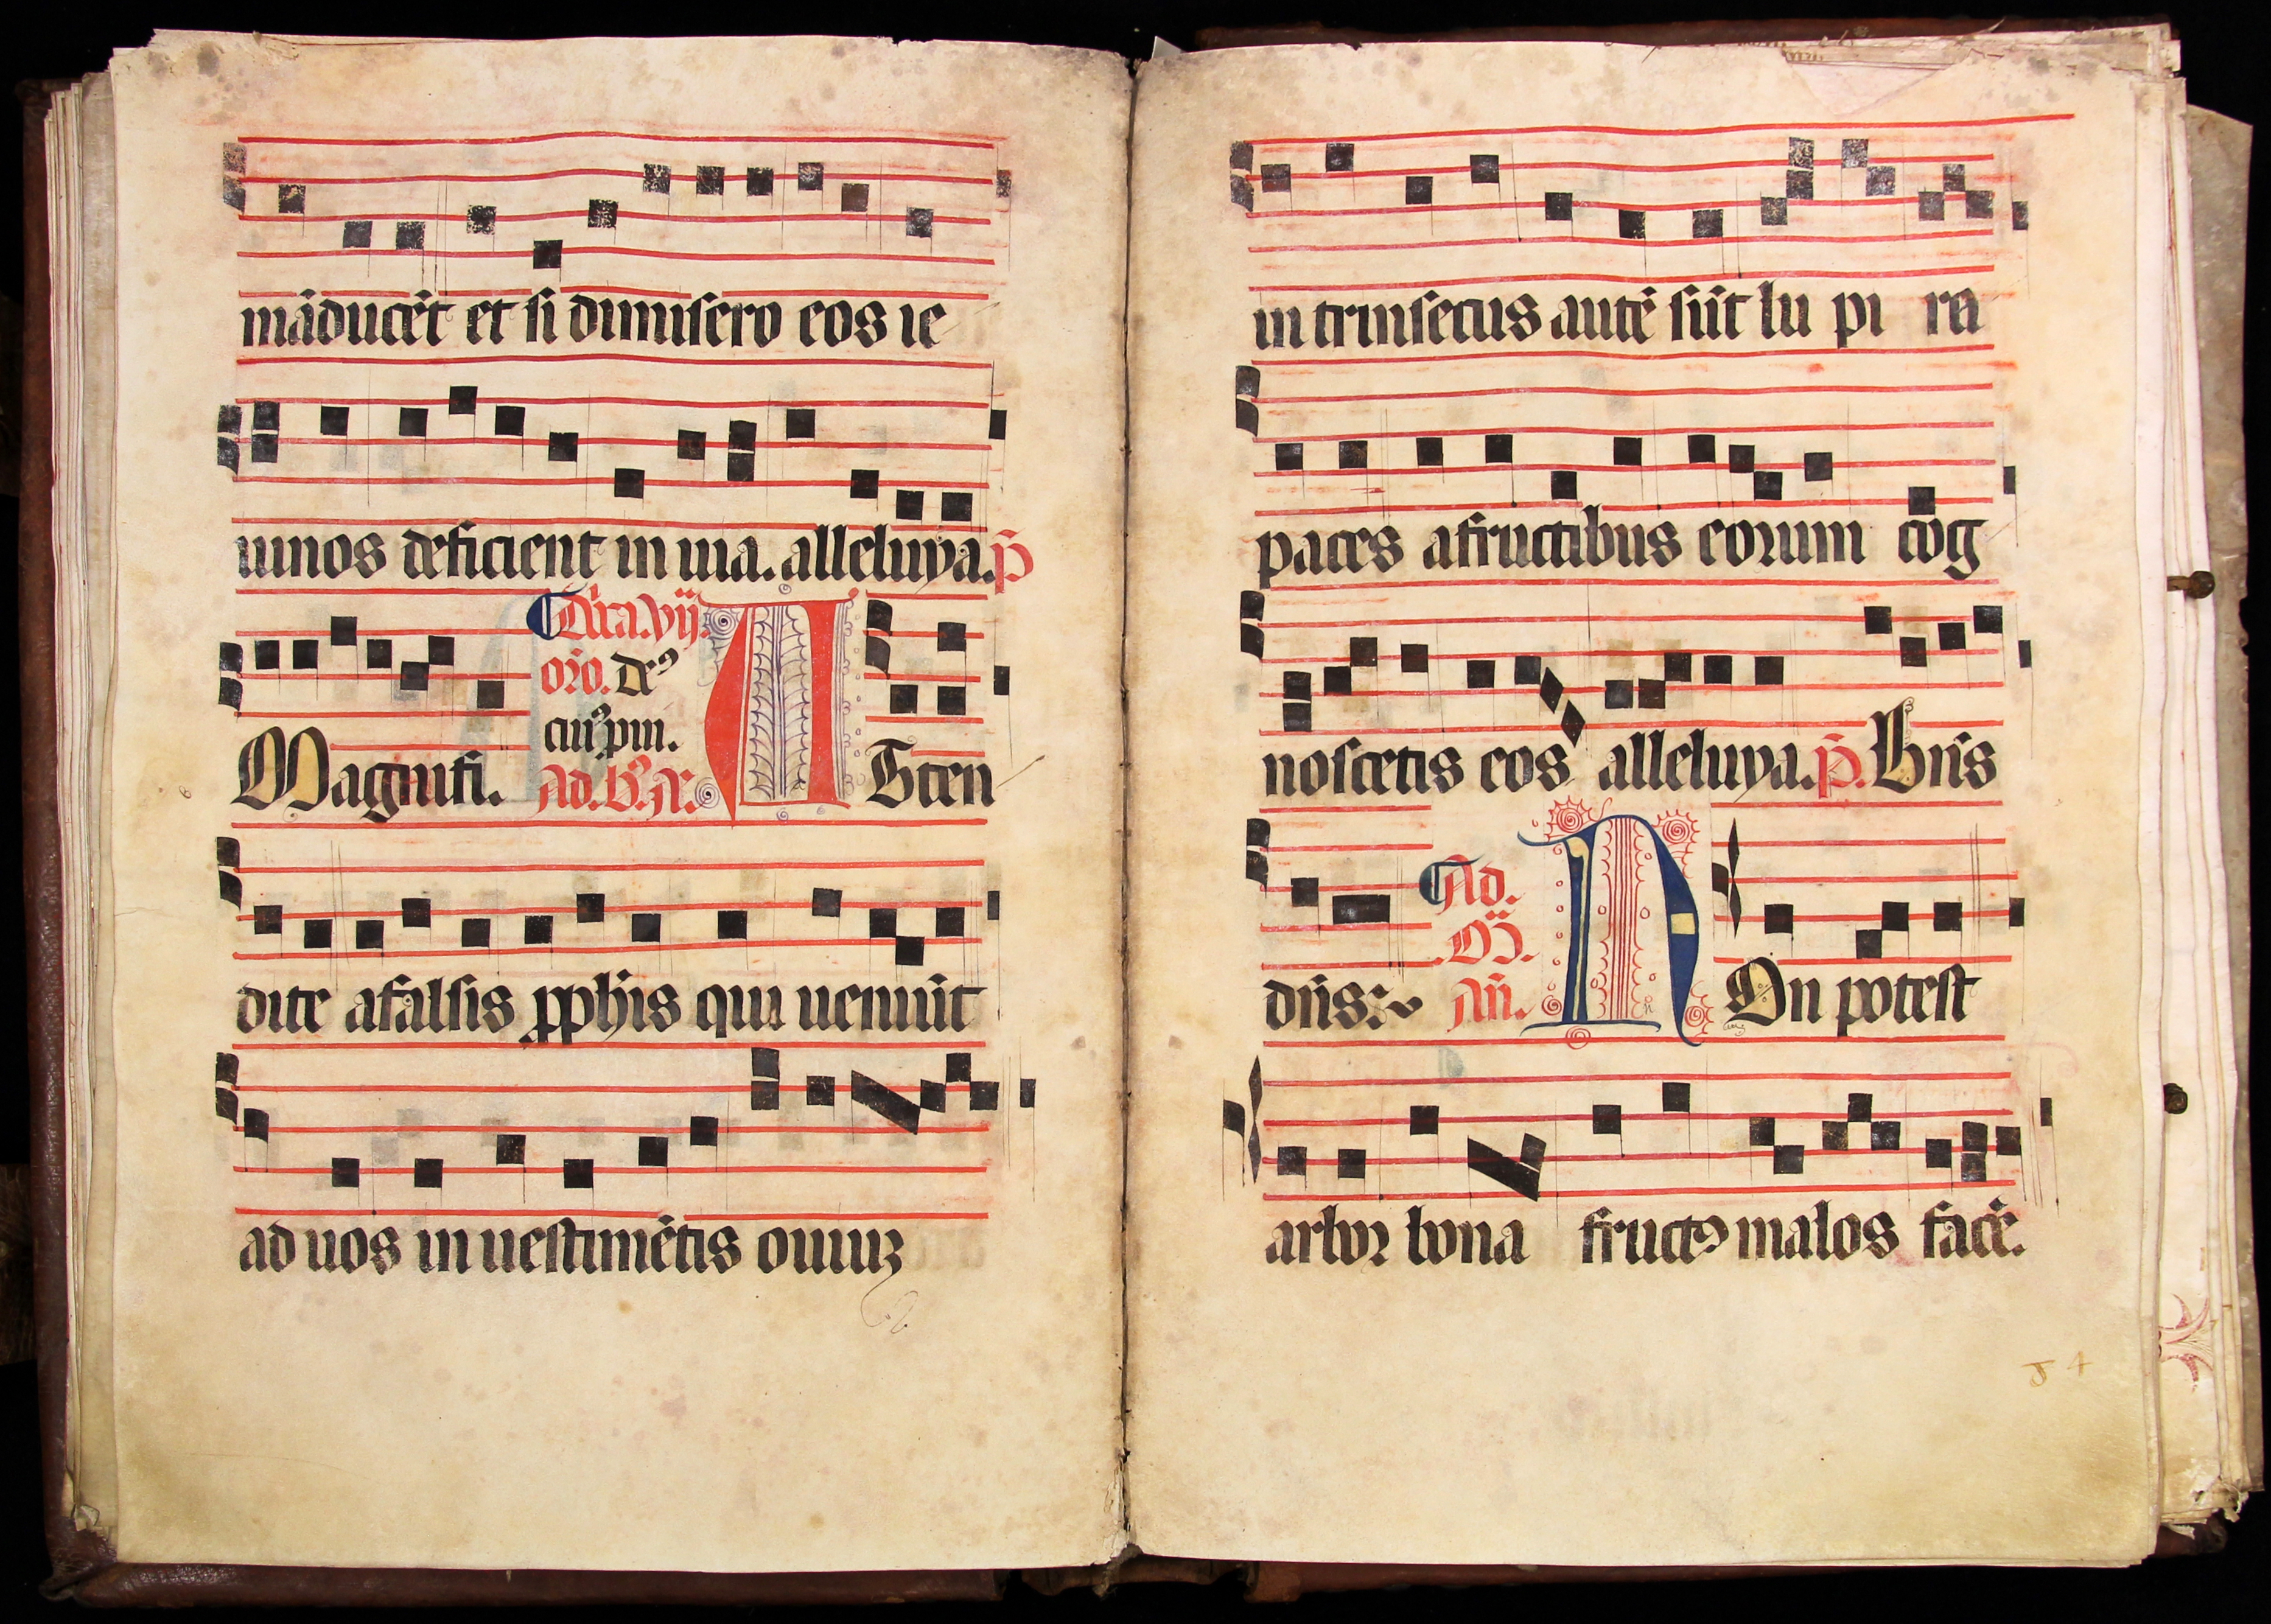 māducēt et si dimisero eos ie
iunos deficient in uia. alleluya. p̄
Magnifi.
Dn̄ca. vij.
oro. deꝰ
cuiꝰ pui.
Ad. b̄. A.
A Tten
dite afalsis pphīs qui ueniūt
ad uos in uestimētis ouiuʒ
in trinsecus autē sūt lu pi ra
paces afructibus eorum cōg
noscetis eos alleluya. p̄. Bn̄s
dn̄s.
Ad.
An̄.
N On potest
arbor bona fructꝰ malos facē.